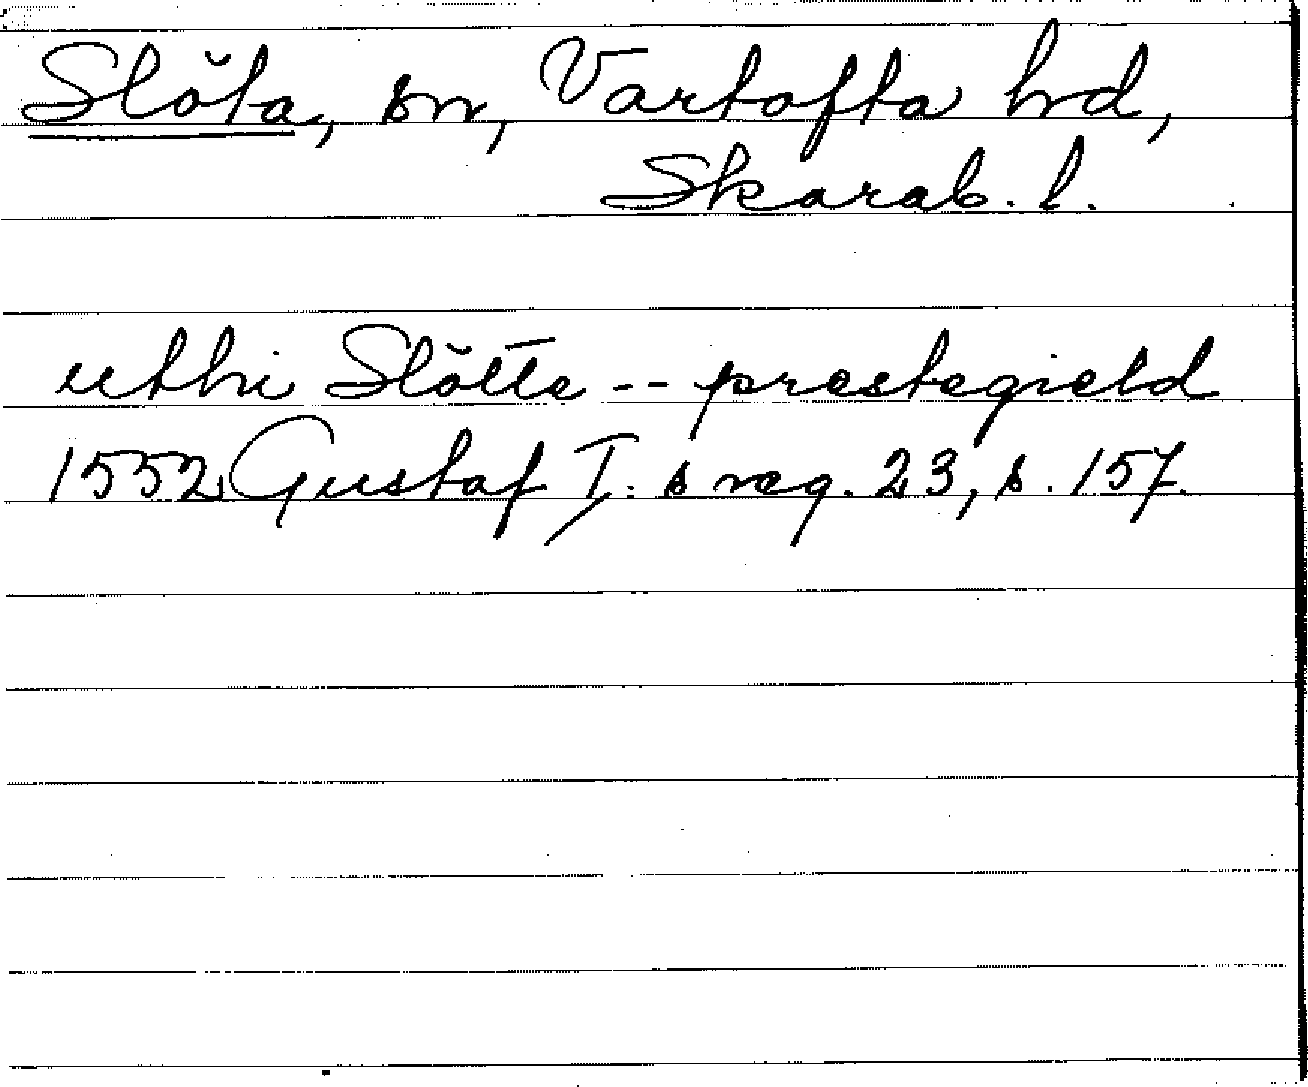 Slöta, sn, Vartofta hd,
Skarab. l.
uthi Slötte -- prestegield
1552 Gustaf I: s reg. 23, s. 157.